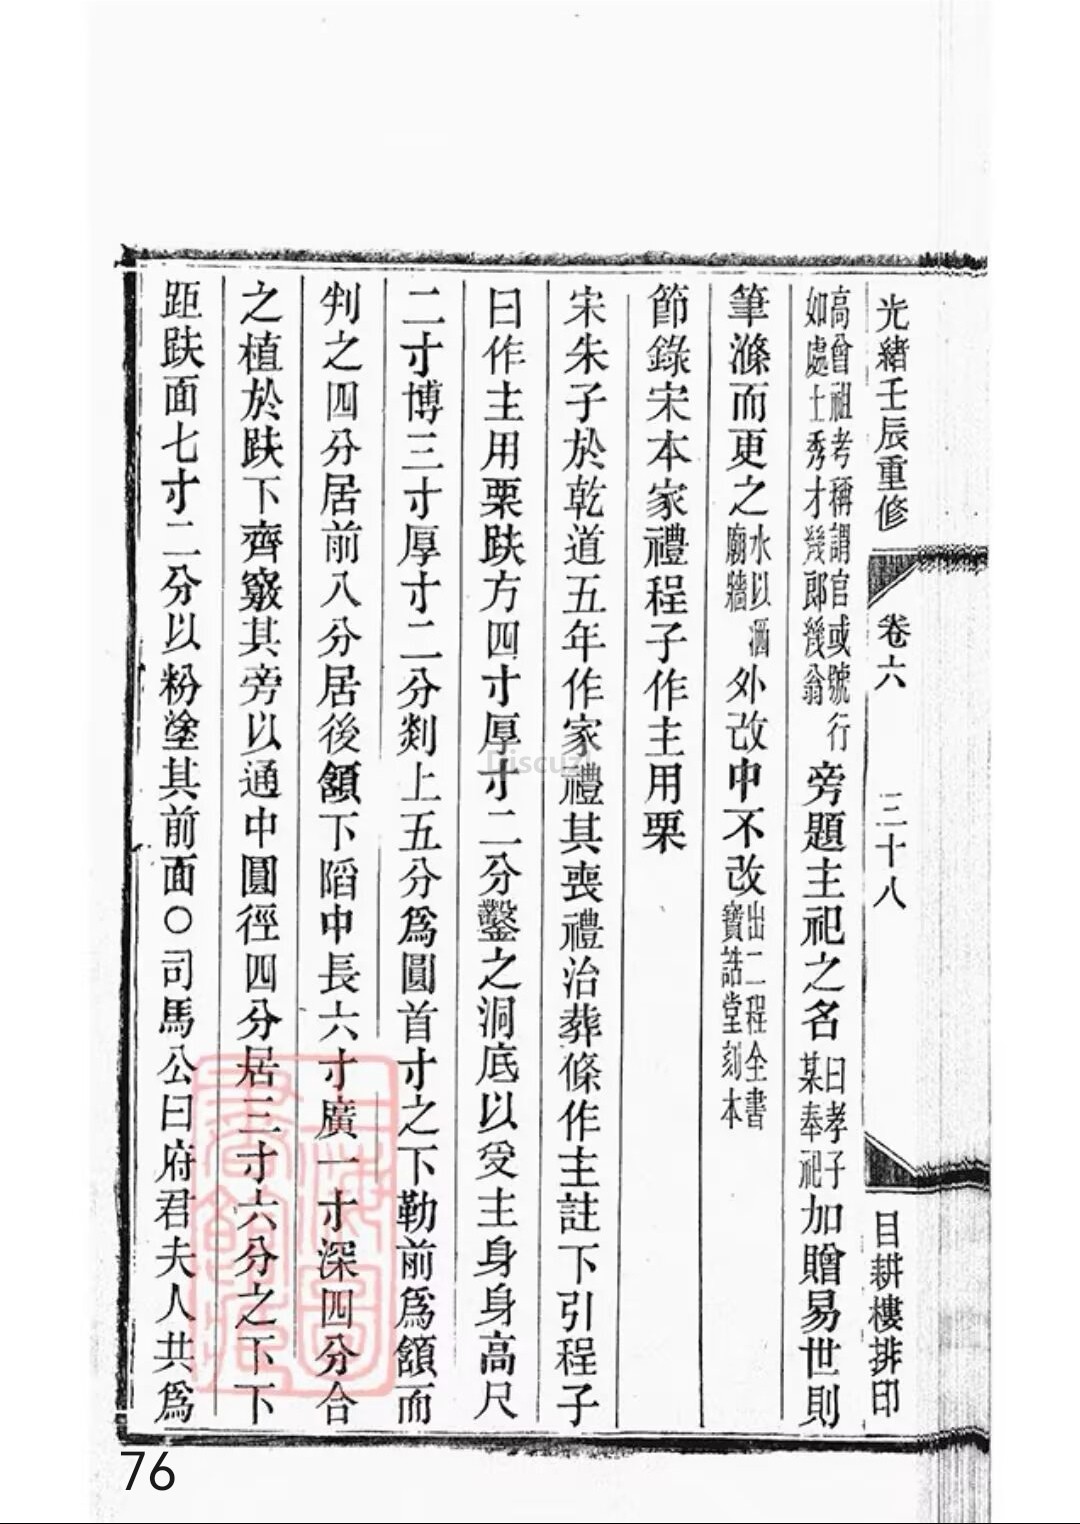 光緒壬辰重修 卷六 三十八 目耕樓排印
高曾祖考稱謂官或號行如處士秀才幾郎幾翁旁題主祀之名曰孝子某奉祀加贈易世則
筆滌而更之水以洒廟牆外改中不改出二程全書寶誥堂刻本
節錄宋本家禮程子作主用栗
宋朱子於乾道五年作家禮其喪禮治葬條作主註下引程子
曰作主用栗趺方四寸厚寸二分鑿之洞底以受主身身高尺
二寸博三寸厚寸二分剡上五分爲圓首寸之下勒前爲頷而
判之四分居前八分居後頷下陷中長六寸廣一寸深四分合
之植於趺下齊竅其旁以通中圓徑四分居三寸六分之下下
距趺面七寸二分以粉塗其前面〇司馬公曰府君夫人共爲
Discuz!
上海圖書館藏
76